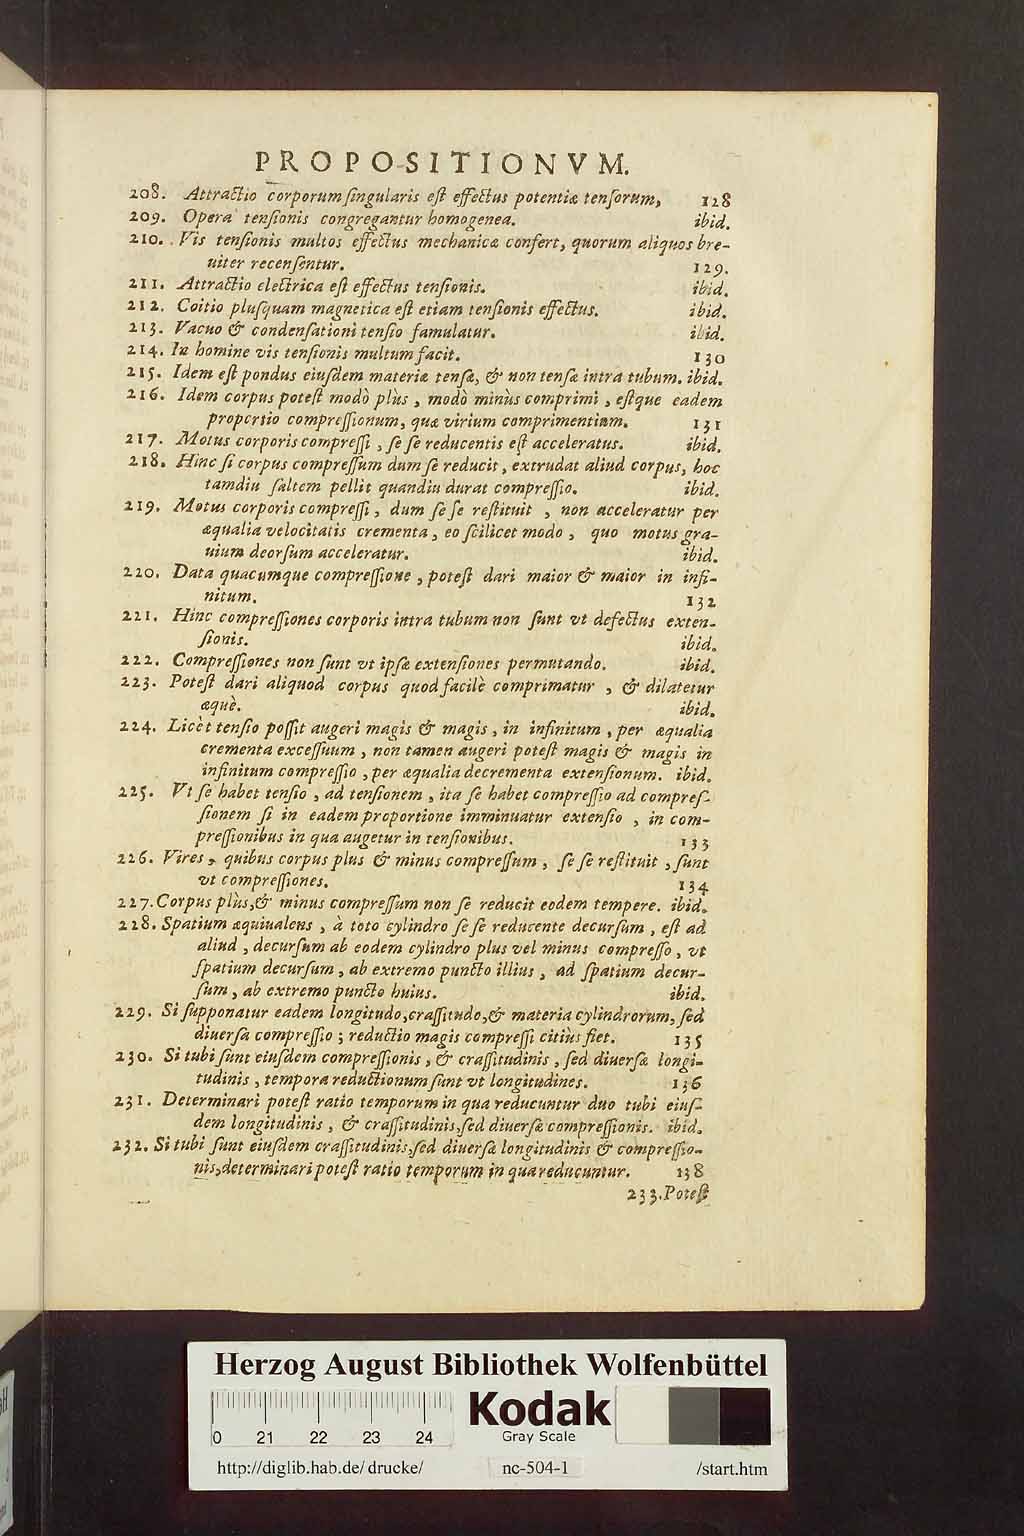 PROPOSITIONVM.
208. Attractio corporum ſingularis eſt effectus potentiæ tenſorum, 128
209. Opera tenſionis congregantur homogenea. ibid.
210. Vis tenſionis multos effectus mechanicæ confert, quorum aliquos bre-
uiter recenſentur. 129.
211. Attractio electrica eſt effectus tenſionis. ibid.
212. Coitio pluſquam magnetica eſt etiam tenſionis effectus. ibid.
213. Vacuo & condenſationi tenſio famulatur. ibid.
214. In homine vis tenſionis multum facit. 130
215. Idem eſt pondus eiuſdem materiæ tenſæ, & non tenſæ intra tubum. ibid.
216. Idem corpus poteſt modò plùs, modò minùs comprimi, eſtque eadem
proportio compreſſionum, quæ virium comprimentium. 131
217. Motus corporis compreſſi, ſe ſe reducentis eſt acceleratus. ibid.
218. Hinc ſi corpus compreſſum dum ſe reducit, extrudat aliud corpus, hoc
tamdiu ſaltem pellit quandiu durat compreſſio. ibid.
219. Motus corporis compreſſi, dum ſe ſe reſtituit, non acceleratur per
æqualia velocitatis crementa, eo ſcilicet modo, quo motus gra-
uium deorſum acceleratur. ibid.
220. Data quacumque compreſſione, poteſt dari maior & maior in infi-
nitum. 132
221. Hinc compreſſiones corporis intra tubum non ſunt vt defectus exten-
ſionis. ibid.
222. Compreſſiones non ſunt vt ipſæ extenſiones permutando. ibid.
223. Poteſt dari aliquod corpus quod facilè comprimatur, & dilatetur
æquè. ibid.
224. Licèt tenſio poſſit augeri magis & magis, in infinitum, per æqualia
crementa exceſſuum, non tamen augeri poteſt magis & magis in
infinitum compreſſio, per æqualia decrementa extenſionum. ibid.
225. Vt ſe habet tenſio, ad tenſionem, ita ſe habet compreſſio ad compreſ-
ſionem ſi in eadem proportione imminuatur extenſio, in com-
preſſionibus in qua augetur in tenſionibus. 133
226. Vires, quibus corpus plus & minus compreſſum, ſe ſe reſtituit, ſunt
vt compreſſiones. 134
227. Corpus plùs, & minus compreſſum non ſe reducit eodem tempere. ibid.
228. Spatium æquiualens, à toto cylindro ſe ſe reducente decurſum, eſt ad
aliud, decurſum ab eodem cylindro plus vel minus compreſſo, vt
ſpatium decurſum, ab extremo puncto illius, ad ſpatium decur-
ſum, ab extremo puncto huius. ibid.
229. Si ſupponatur eadem longitudo, craſſitudo, & materia cylindrorum, ſed
diuerſa compreſſio; reductio magis compreſſi citiùs fiet. 135
230. Si tubi ſunt eiuſdem compreſſionis, & craſſitudinis, ſed diuerſæ longi-
tudinis, tempora reductionum ſunt vt longitudines. 136
231. Determinari poteſt ratio temporum in qua reducuntur duo tubi eiuſ-
dem longitudinis, & craſſitudinis, ſed diuerſæ compreſſionis. ibid.
232. Si tubi ſunt eiuſdem craſſitudinis, ſed diuerſæ longitudinis & compreſſio-
nis, determinari poteſt ratio temporum in qua reducuntur. 138
233. Poteſt
Herzog August Bibliothek Wolfenbüttel
0 21 22 23 24
Kodak
Gray Scale
http://diglib.hab.de/drucke/ nc-504-1 /start.htm